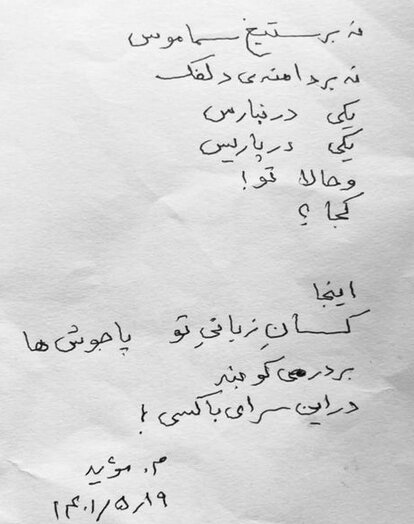 نه بر ستیغ سماموس
نه بر دامنه‌ی دلفک
یکی در نبارس
یکی در پاریس
و حالا تو!
کجا؟
اینجا
کسانِ زیانیِ تو پاجوش ها
بر در می کوبند
در این سرای باکسی!
م. مؤید
۱۴۰۱/۵/۱۹